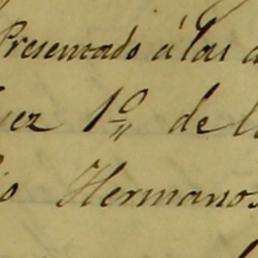 Presentado á las
uez 1º de l
io Hermanos